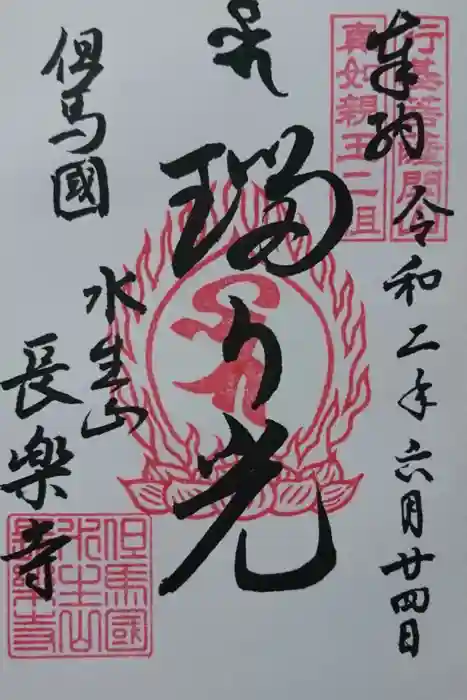 奉納 令和二年六月廿四日
行基菩薩開山
真如親王二祖
瑠り光
但馬國
水生山
長樂寺
但馬國
水生山
長樂寺